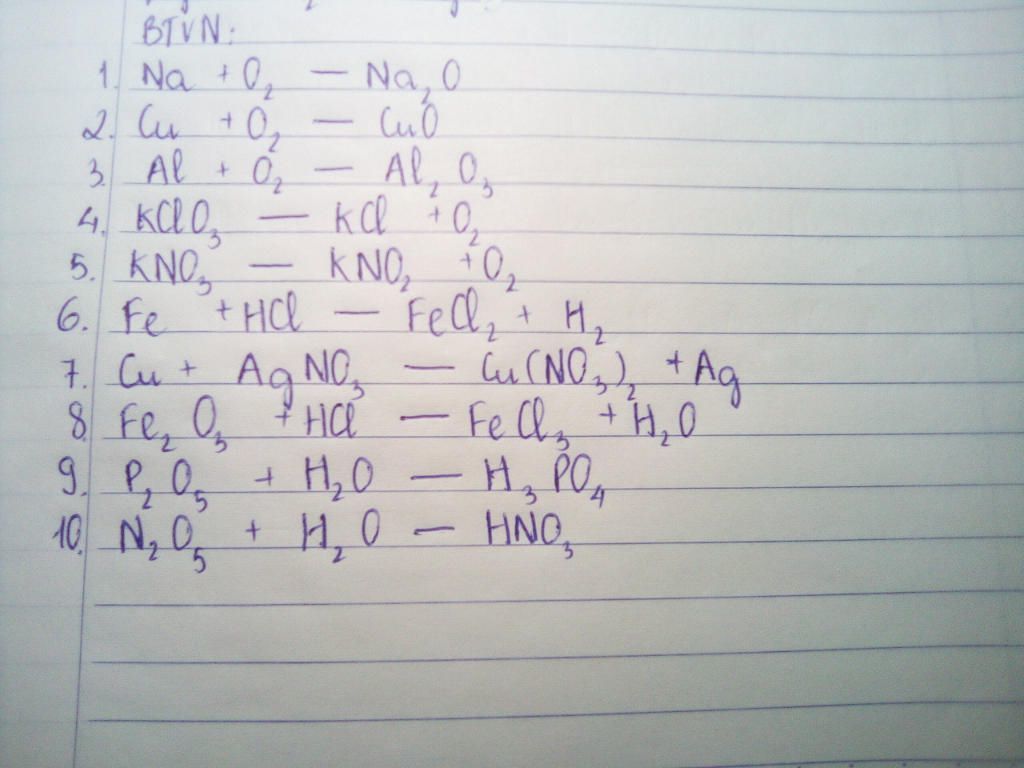 BTVN:
1. Na + O₂ — Na₂O
2. Cu + O₂ — CuO
3. Al + O₂ — Al₂O₃
4. KClO₃ — KCl + O₂
5. KNO₃ — KNO₂ + O₂
6. Fe + HCl — FeCl₂ + H₂
7. Cu + AgNO₃ — Cu(NO₃)₂ + Ag
8. Fe₂O₃ + HCl — FeCl₃ + H₂O
9. P₂O₅ + H₂O — H₃PO₄
10. N₂O₅ + H₂O — HNO₃